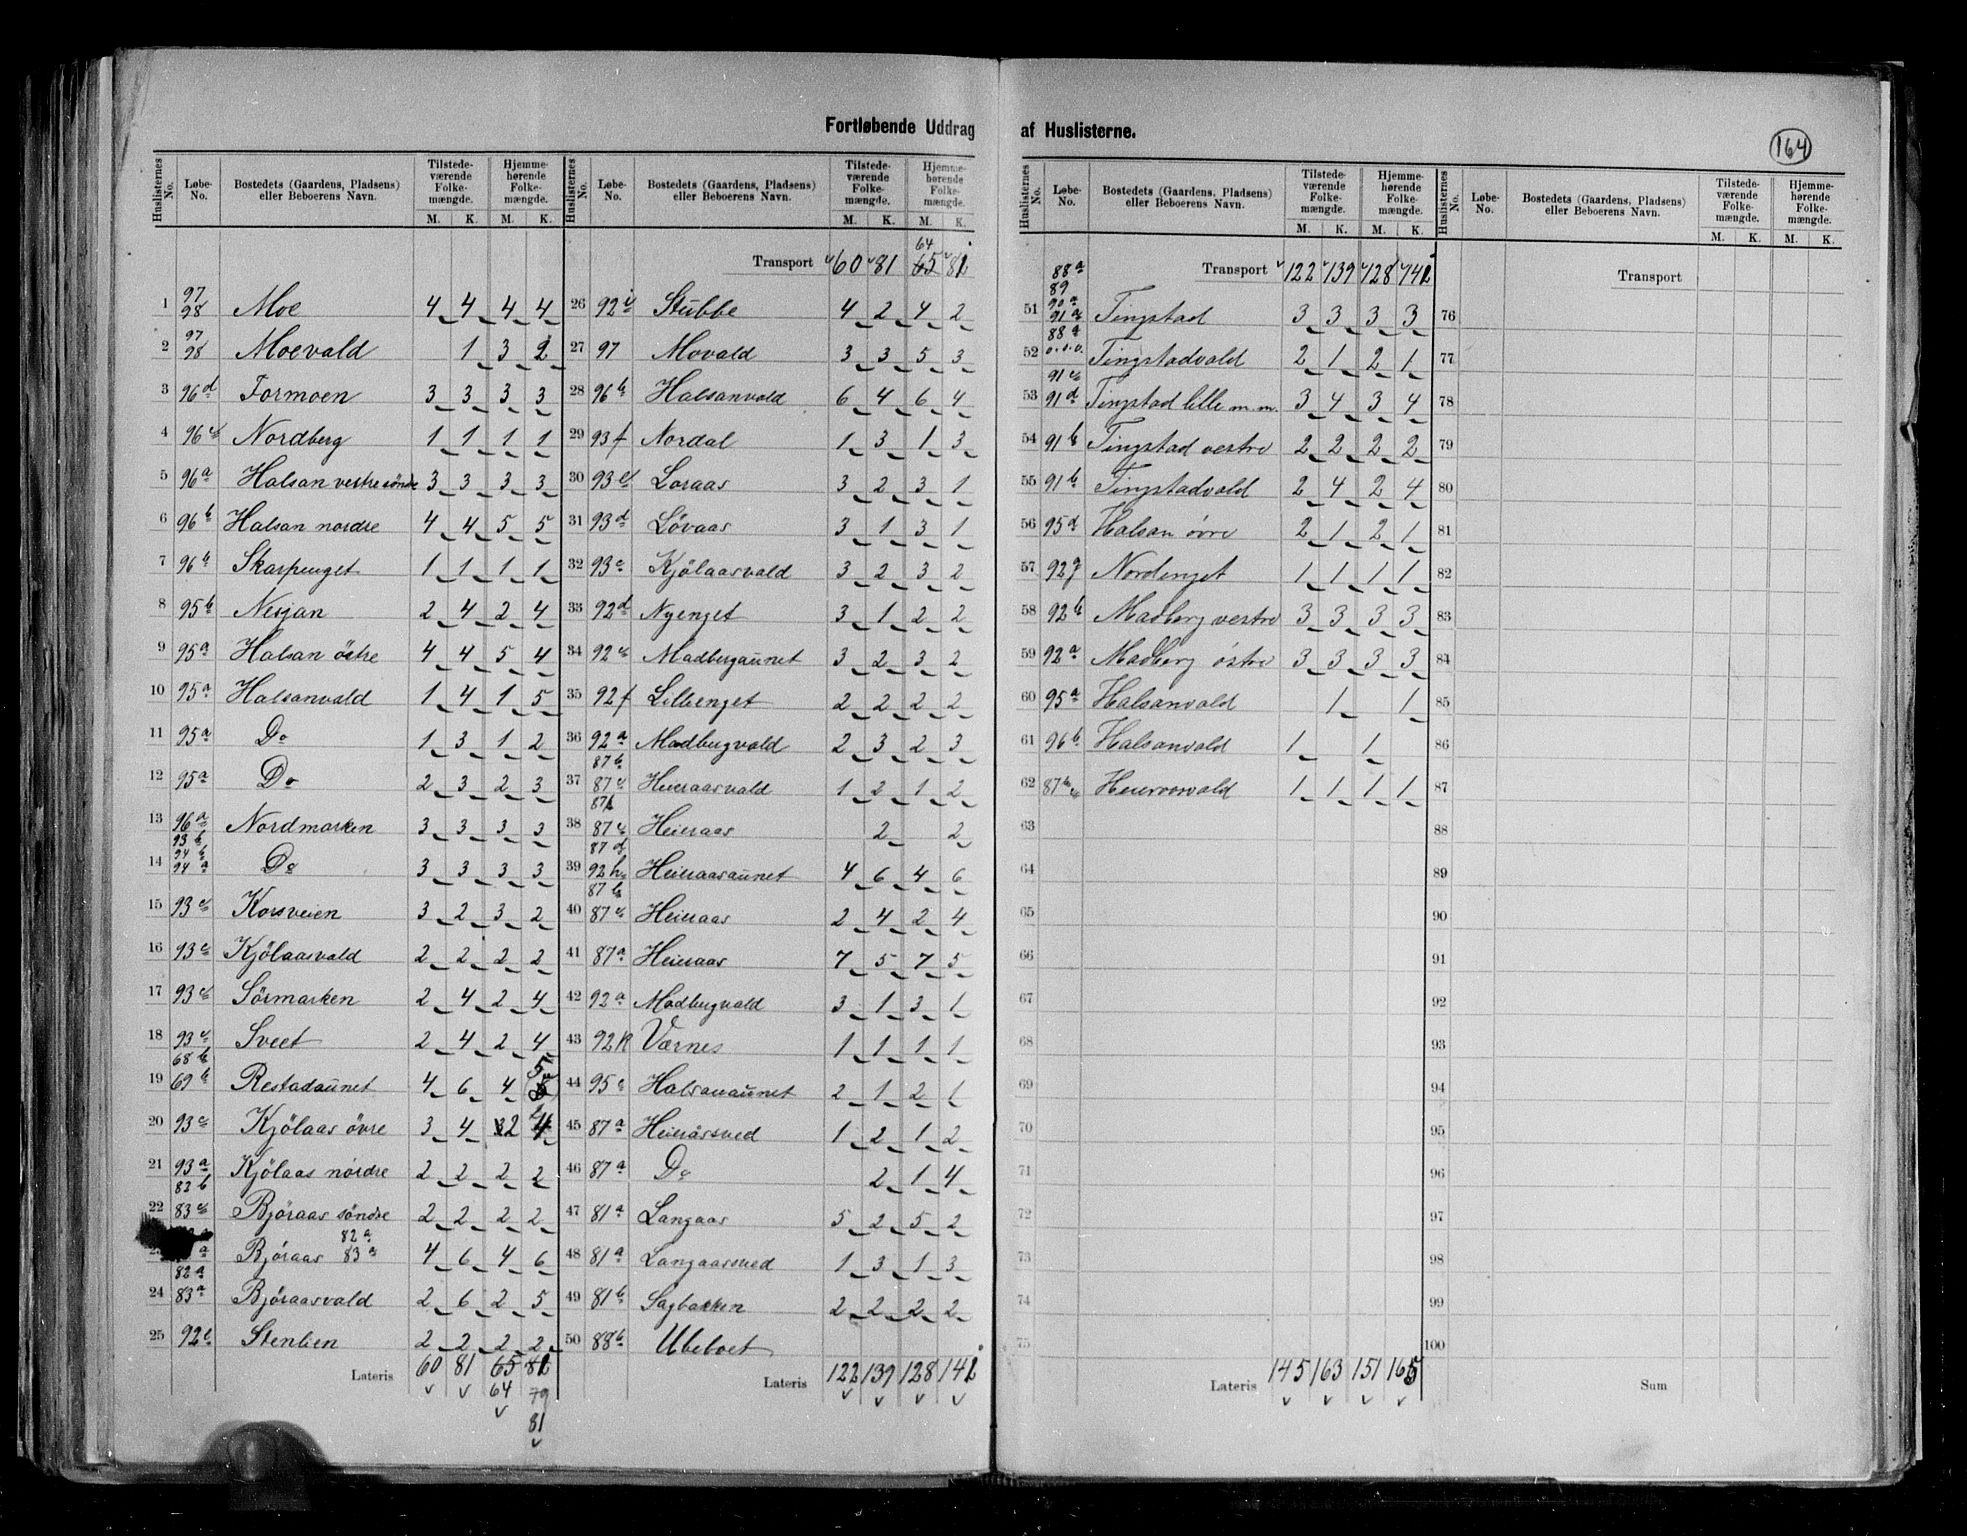 Fortløbende Uddrag af Huslisterne.
164
Huslisternes No. Løbe-No. Bostedets (Gaardens, Pladsens) eller Beboerens Navn. Tilstedeværende Folkemængde. M. K. Hjemmehørende Folkemængde. M. K.
1 97 98 Moe 4 4 4 4
2 97 98 Moevald 1 3 2
3 96d Formoen 3 3 3 3
4 96c Nordberg 1 1 1 1
5 96a Halsan vestre søndre 3 3 3 3
6 96b Halsan nordre 4 4 5 5
7 96b Skarpenget 1 1 1 1
8 95b Nesjan 2 4 2 4
9 95a Halsan östre 4 4 5 4
10 95a Halsanvald 1 4 1 5
11 95a Do 1 3 1 2
12 95a Do 2 3 2 3
13 96a Nordmarken 3 3 3 3
14 93b 94b 94a Do 3 3 3 3
15 93c Korsveien 3 2 3 2
16 93c Kjölaasvald 2 2 2 2
17 93c Sörmarken 2 4 2 4
18 93c Sveet 2 4 2 4
19 68b 69b Restadaunet 4 6 4 5
20 93c Kjölaas övre 3 4 2 4
21 93a Kjölaas nordre 2 2 2 2
22 82b 83c Björaas söndre 2 2 2 2
23 a Björaas 82a 83a 4 6 4 6
24 82a 83a Björaasvald 2 6 2 5
25 92c Stenlien 2 2 2 2
Lateris 60 81 65 81
64 79
81
Huslisternes No. Løbe-No. Bostedets (Gaardens, Pladsens) eller Beboerens Navn. Tilstedeværende Folkemængde. M. K. Hjemmehørende Folkemængde. M. K.
64
Transport 60 81 65 81
26 92i Stubbe 4 2 4 2
27 97 Movald 3 3 5 3
28 96b Halsanvald 6 4 6 4
29 93f Nordal 1 3 1 3
30 93e Loraas 3 2 3 1
31 93d Lövaas 3 1 3 1
32 93c Kjölaasvald 3 2 3 2
33 92d Nyenget 3 1 2 2
34 92e Madbergaunet 3 2 3 2
35 92f Lillenget 2 2 2 2
36 92a Madbergvald 2 3 2 3
37 87b 87c Heieraasvald 1 2 1 2
38 87b 87c Heieraas 2 2
39 87d 92h Heieraasaunet 4 6 4 6
40 87b 87c Heieraas 2 4 2 4
41 87a Heieraas 7 5 7 5
42 92a Madbergvald 3 1 3 1
43 92k Værnes 1 1 1 1
44 95c Halsanaunet 2 1 2 1
45 87a Heieråsved 1 2 1 2
46 87a Do 2 1 4
47 81a Langaas 5 2 5 2
48 81a Langaasved 1 3 1 3
49 81b Sagbakken 2 2 2 2
50 88b Ubeboet
Lateris 122 139 128 141
Huslisternes No. Løbe-No. Bostedets (Gaardens, Pladsens) eller Beboerens Navn. Tilstedeværende Folkemængde. M. K. Hjemmehørende Folkemængde. M. K.
Transport 122 139 128 141
51 88a 89 90a 91a Tingstad 3 3 3 3
52 88a o.s.v. Tingstadvald 2 1 2 1
53 91c 91d Tingstad lille m m. 3 4 3 4
54 91b Tingstad vestre 2 2 2 2
55 91b Tingstadvald 2 4 2 4
56 95d Halsan övre 2 1 2 1
57 92g Nordenget 1 1 1 1
58 92b Madberg vestre 3 3 3 3
59 92a Madberg østre 3 3 3 3
60 95a Halsanvald 1 1
61 96b Halsanvald 1 1
62 87b c Heieraasvald 1 1 1 1
63
64
65
66
67
68
69
70
71
72
73
74
75
Lateris 145 163 151 165
Huslisternes No. Løbe-No. Bostedets (Gaardens, Pladsens) eller Beboerens Navn. Tilstedeværende Folkemængde. M. K. Hjemmehørende Folkemængde. M. K.
Transport
76
77
78
79
80
81
82
83
84
85
86
87
88
89
90
91
92
93
94
95
96
97
98
99
100
Sum